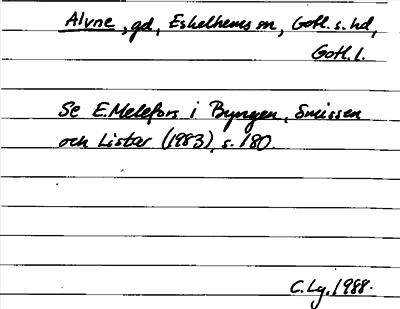 Alvne, gd, Eskelhems sn, Gotl. s. hd,
Gotl. l.
Se E. Melefors i Byngen, Snissen
och Listar (1983), s. 180.
C. Lg. 1988.